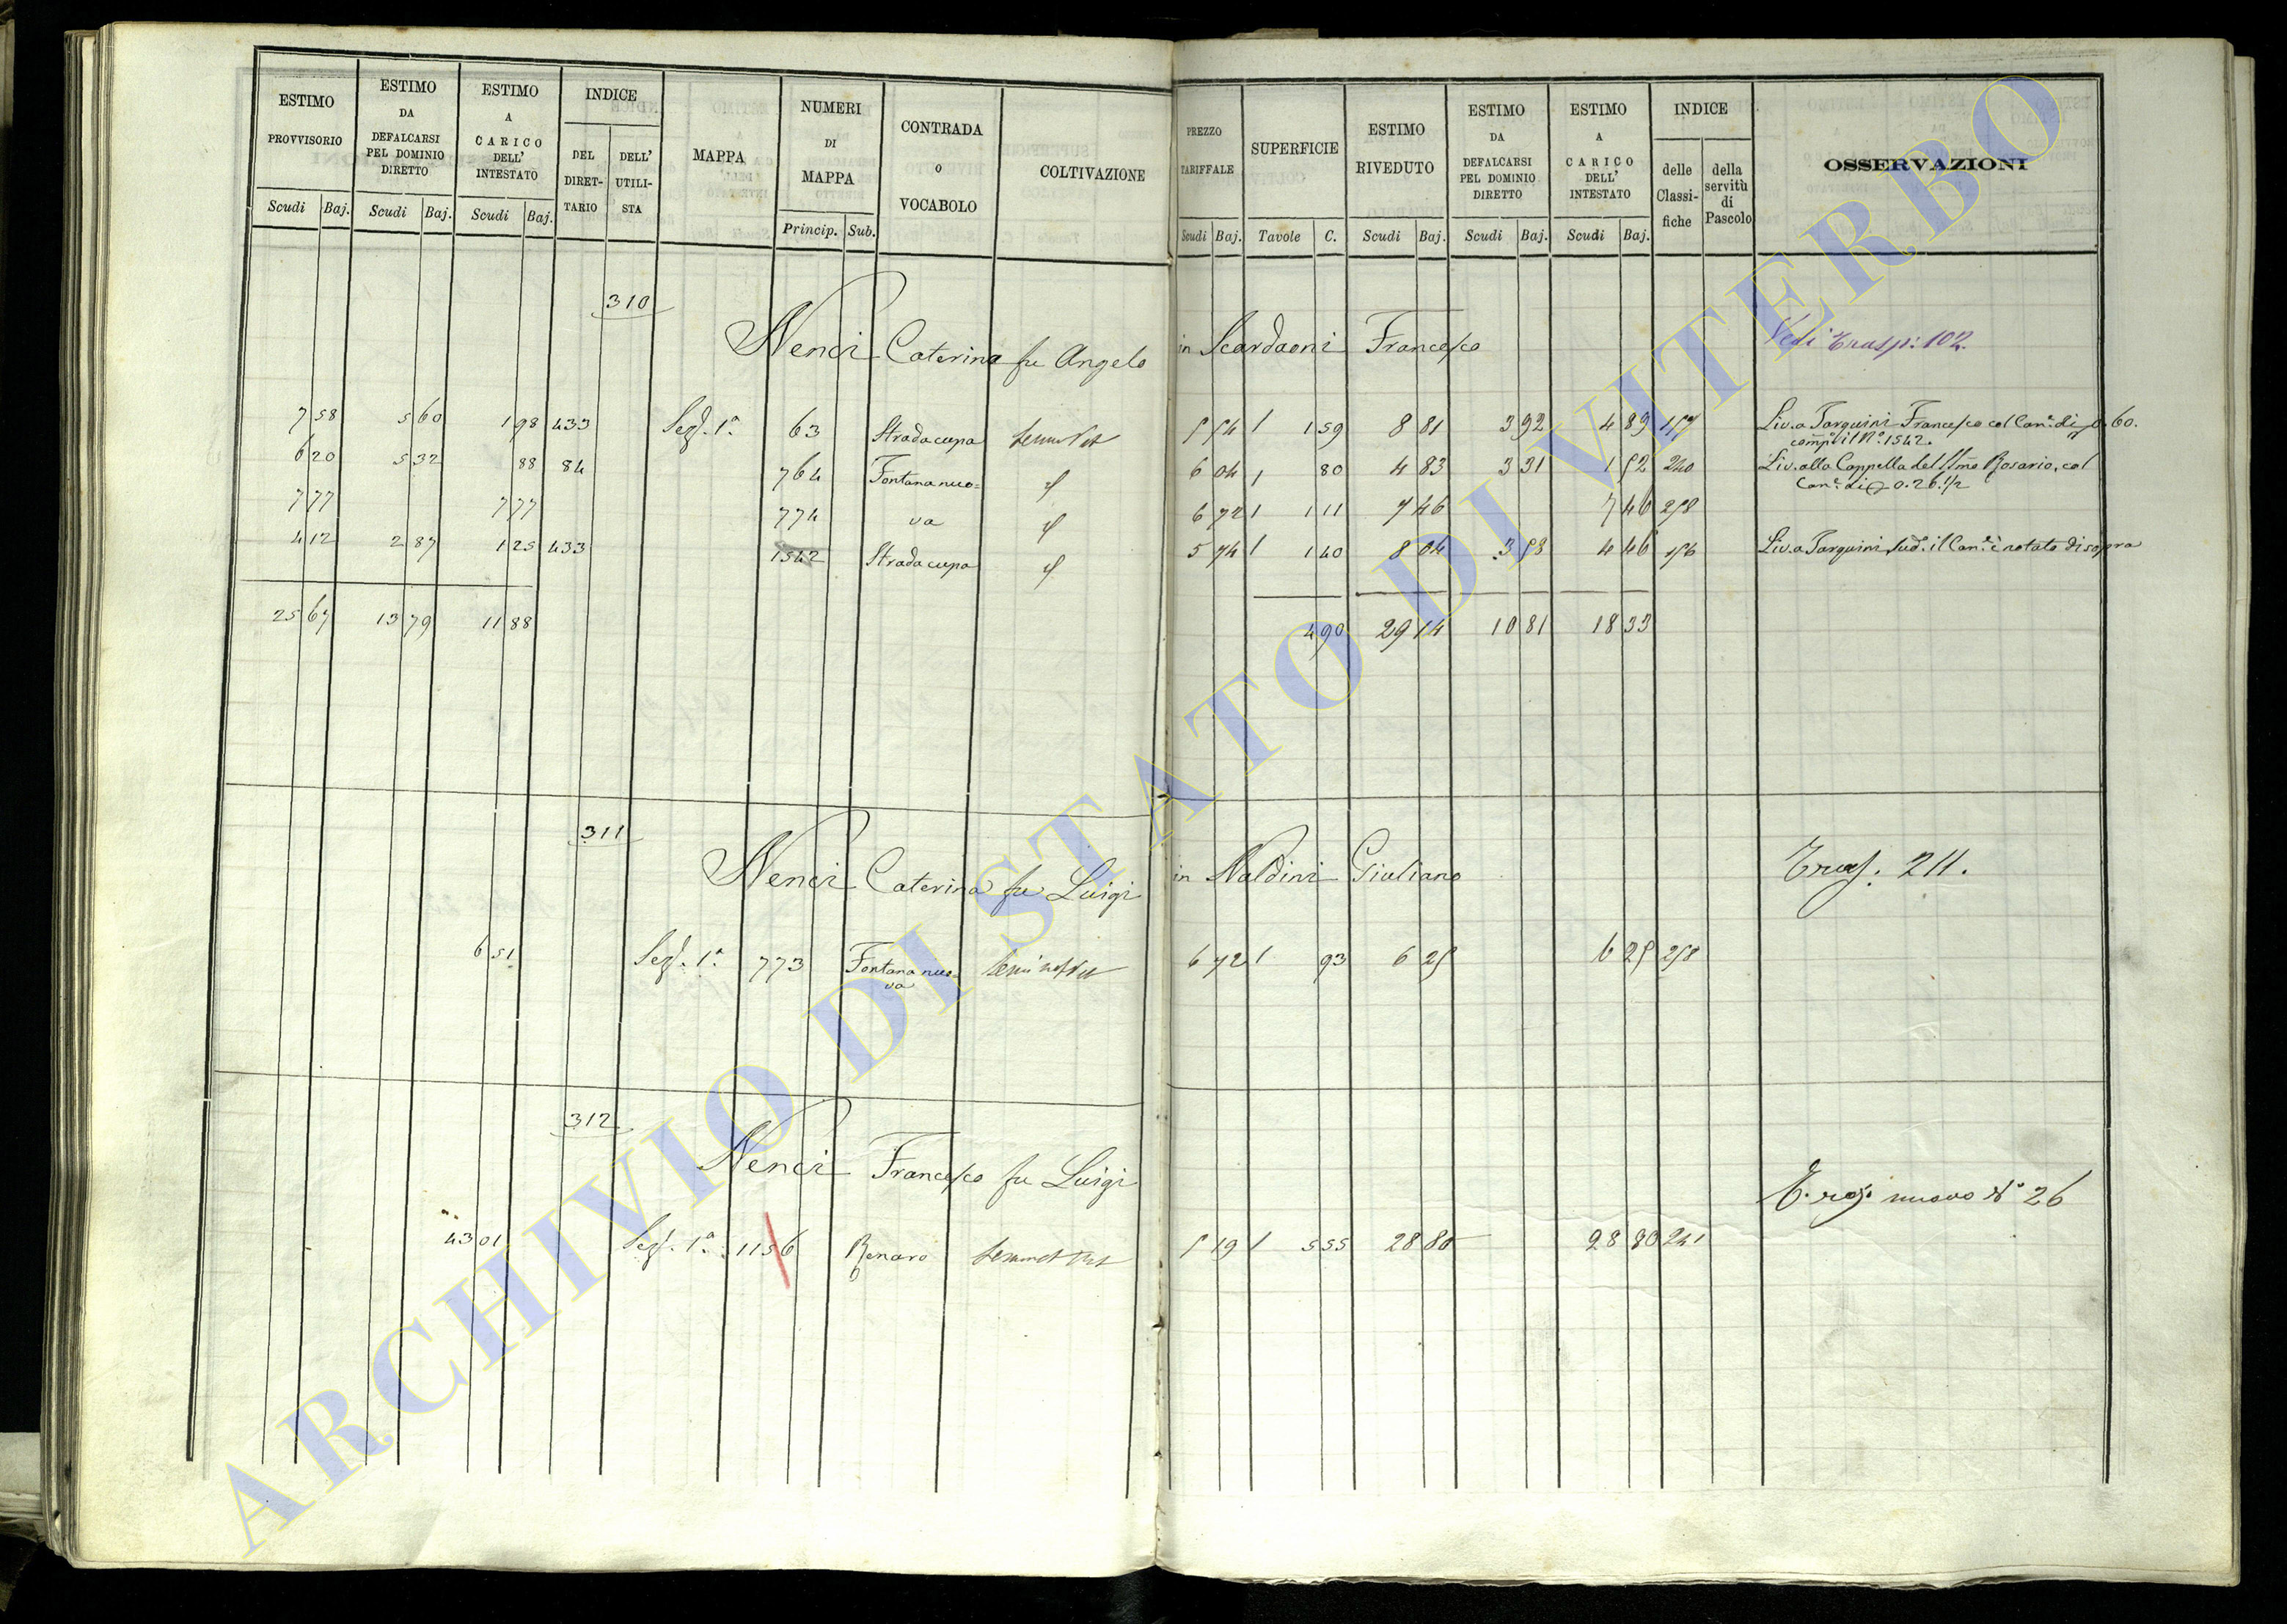 ESTIMO PROVVISORIO
ESTIMO DA DEFALCARSI PEL DOMINIO DIRETTO
ESTIMO A CARICO DELL' INTESTATO
INDICE
DEL DIRET-TARIO
DELL' UTILI-STA
MAPPA
NUMERI DI MAPPA
CONTRADA O VOCABOLO
COLTIVAZIONE
Scudi Baj. Scudi Baj. Scudi Baj. Princip. Sub.
PREZZO TARIFFALE
SUPERFICIE
ESTIMO RIVEDUTO
ESTIMO DA DEFALCARSI PEL DOMINIO DIRETTO
ESTIMO A CARICO DELL' INTESTATO
INDICE
delle Classi-fiche
della servitù di Pascolo
OSSERVAZIONI
Scudi Baj. Tavole C. Scudi Baj. Scudi Baj. Scudi Baj.
310
Nenci Caterina fu Angelo in Scardaoni Francesco Vedi Trasp: 102.
7 58 5 60 1 98 433 Sez. 1a. 63 Strada cupa 1 59 8 81 3 92 4 89 157 Liv. a Tarquini Francesco col Can.e di 0.60.
comp.o il No. 1542.
6 20 5 32 88 84 764 Fontana nuo= 6 04 80 4 83 3 31 1 52 240 Liv. alla Cappella del SSmo Rosario, col
Can.e di 0.26.1/2
7 77 7 77 774 va 6 72 1 11 7 46 7 46 258
4 12 2 87 1 25 433 1542 Strada cupa 5 74 1 40 8 04 3 58 4 46 156 Liv. a Tarquini sud.o il Can.e è notato di sopra
25 67 13 79 11 88 4 90 29 14 10 81 18 33
311
Nenci Caterina fu Luigi in Naldini Giuliano Trasp. 211.
6 51 Sez. 1a. 773 Fontana nuo= 6 72 93 6 25 6 25 258
va
312
Nenci Francesco fu Luigi
nuovo No 26
43 01 Sez. 1a. 1156 5 19 5 55 28 80 28 80 241
ARCHIVIO DI STATO DI VITERBO